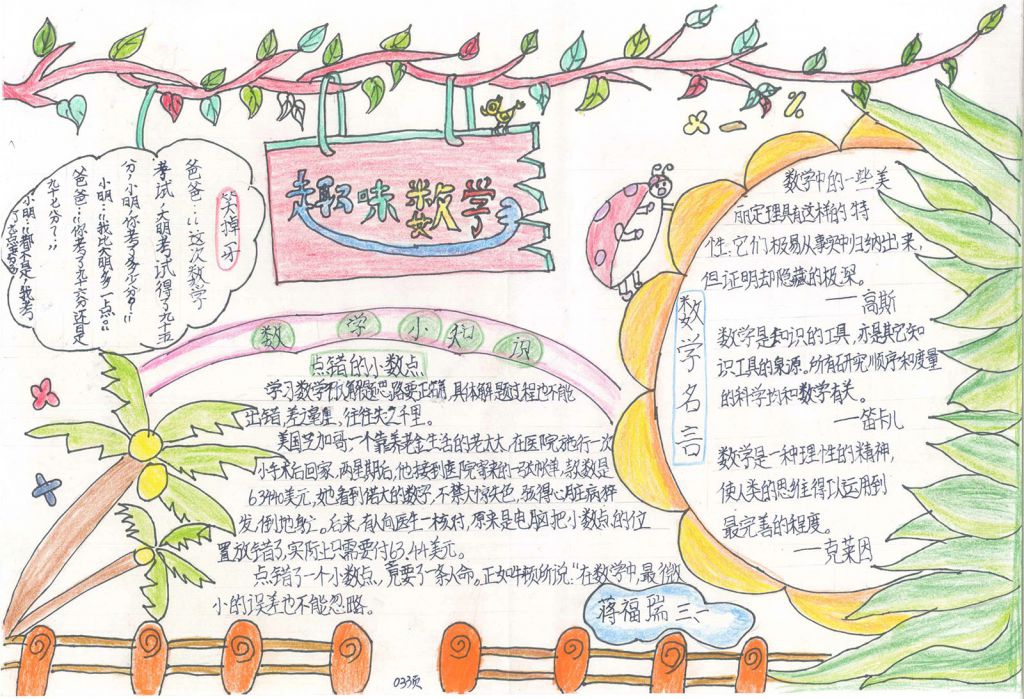 趣味数学
笑掉牙
爸爸："这次数学
考试,大明考试得了九十五
分,小明,你考了多少分?"
小明："我比大明多一点。"
爸爸："你考了九十六分还是
九十七分？"
小明："都不是,我考
了
数学小知识
点错的小数点
学习数学不仅解题思路要正确,具体解题过程也不能
出错,差之毫厘,往往失之千里。
美国芝加哥一个靠养老金生活的老太太,在医院施行一次
小手术后回家,两星期后,他接到医院寄来的一张帐单,款数是
63440美元,她看到偌大的数字,不禁大惊失色,骇得心脏病猝
发,倒地身亡。后来,有人向医生一核对,原来是电脑把小数点的位
置放错了,实际上只需要付63.44美元。
点错了一个小数点,竟要了一条人命。正如牛顿所说："在数学中,最微
小的误差也不能忽略。
数学名言
数学中的一些美
丽定理具有这样的特
性:它们极易从事实中归纳出来,
但证明却隐藏的极深。
——高斯
数学是知识的工具,亦是其它知
识工具的泉源。所有研究顺序和度量
的科学均和数学有关。
—笛卡儿
数学是一种理性的精神,
使人类的思维得以运用到
最完善的程度。
—克莱因
蒋福瑞 三、
033页